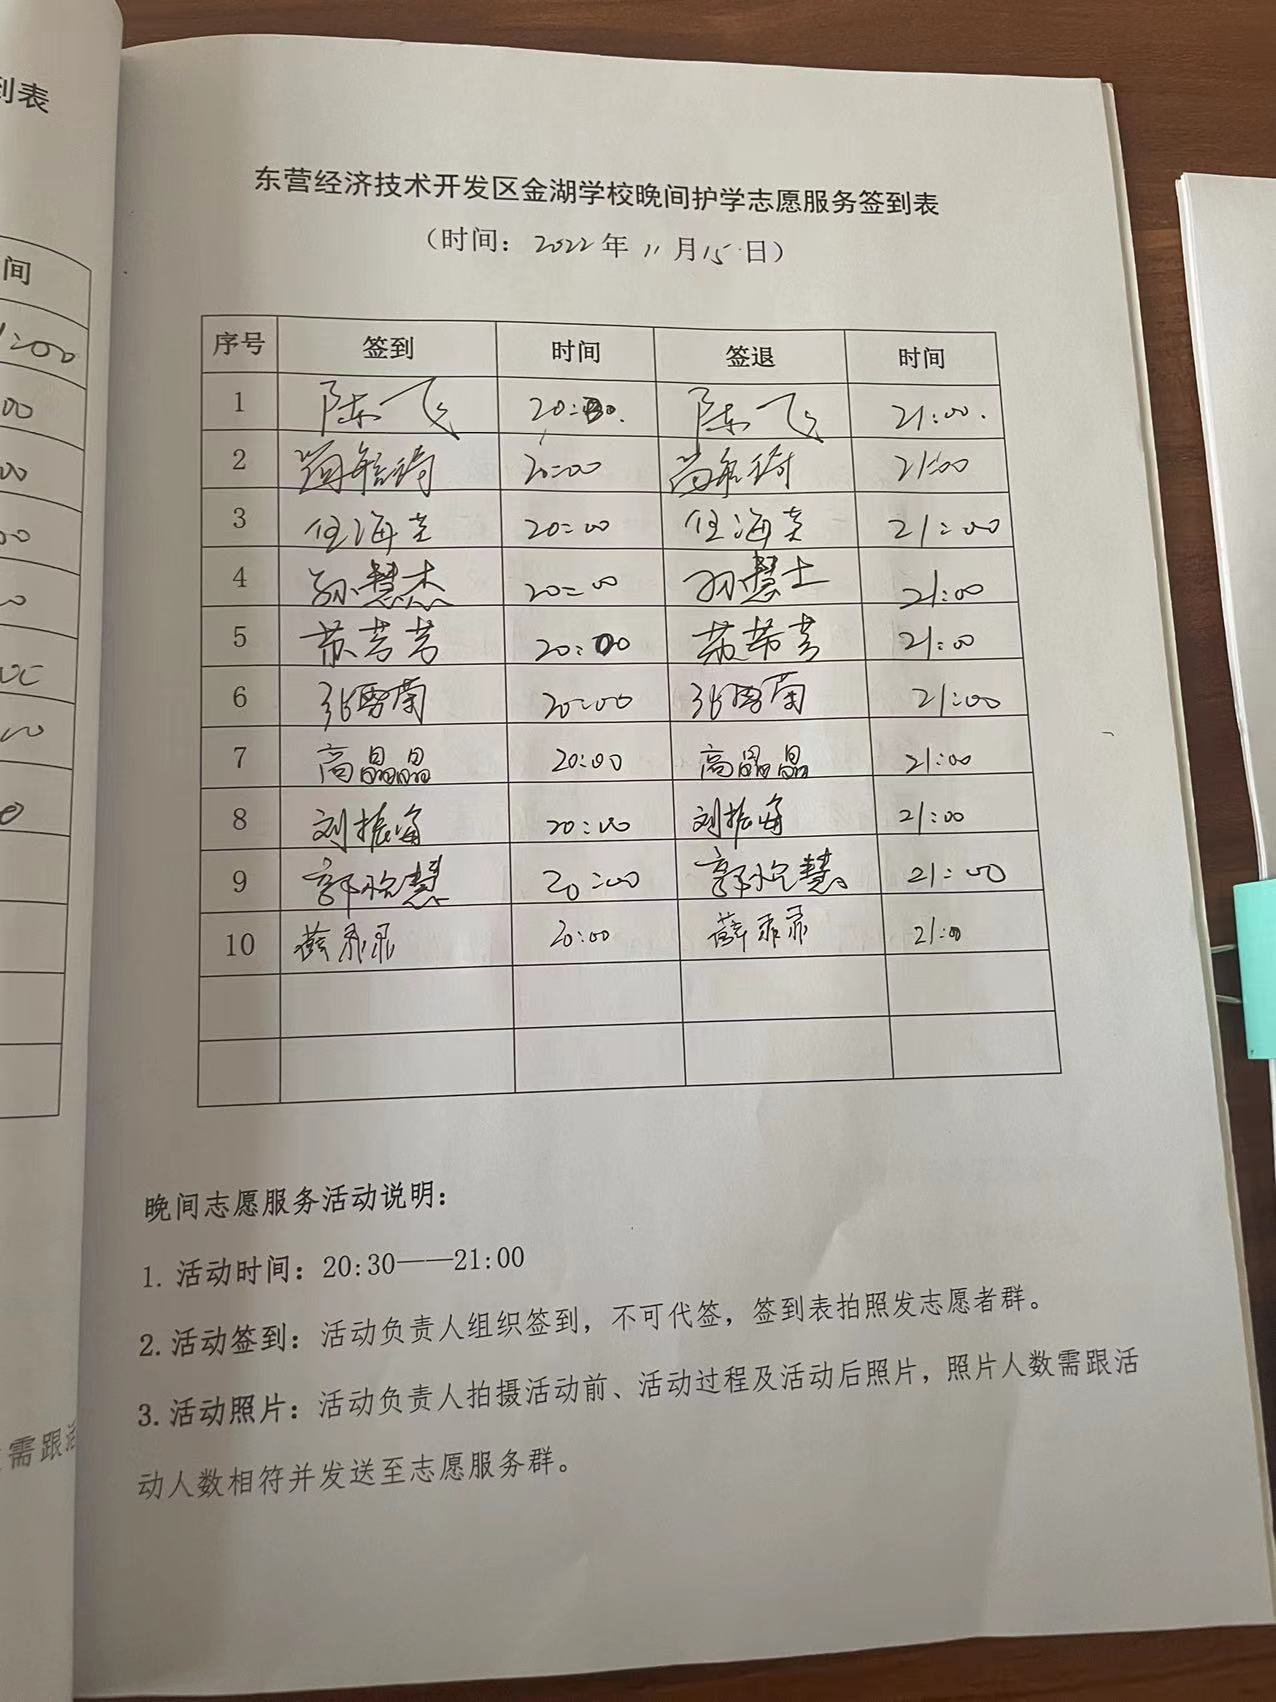 到表
间
1:00
00
00
00
需跟活
东营经济技术开发区金湖学校晚间护学志愿服务签到表
（时间：2022年11月15日）
序号 签到 时间 签退 时间
1 陈飞 20:00. 陈飞 21:00.
2 20:00 21:00
3 任海芝 20:00 任海芝 21:00
4 孙慧杰 20:00 孙慧 21:00
5 苏芳芳 20:00 苏芳芳 21:00
6 张 20:00 张 21:00
7 高晶晶 20:00 高晶晶 21:00
8 刘振海 20:00 刘振海 21:00
9 郭晓慧 20:00 郭晓慧 21:00
10 薛乖乖 20:00 薛乖乖 21:00
晚间志愿服务活动说明：
1. 活动时间：20:30——21:00
2. 活动签到：活动负责人组织签到，不可代签，签到表拍照发志愿者群。
3. 活动照片：活动负责人拍摄活动前、活动过程及活动后照片，照片人数需跟活
动人数相符并发送至志愿服务群。